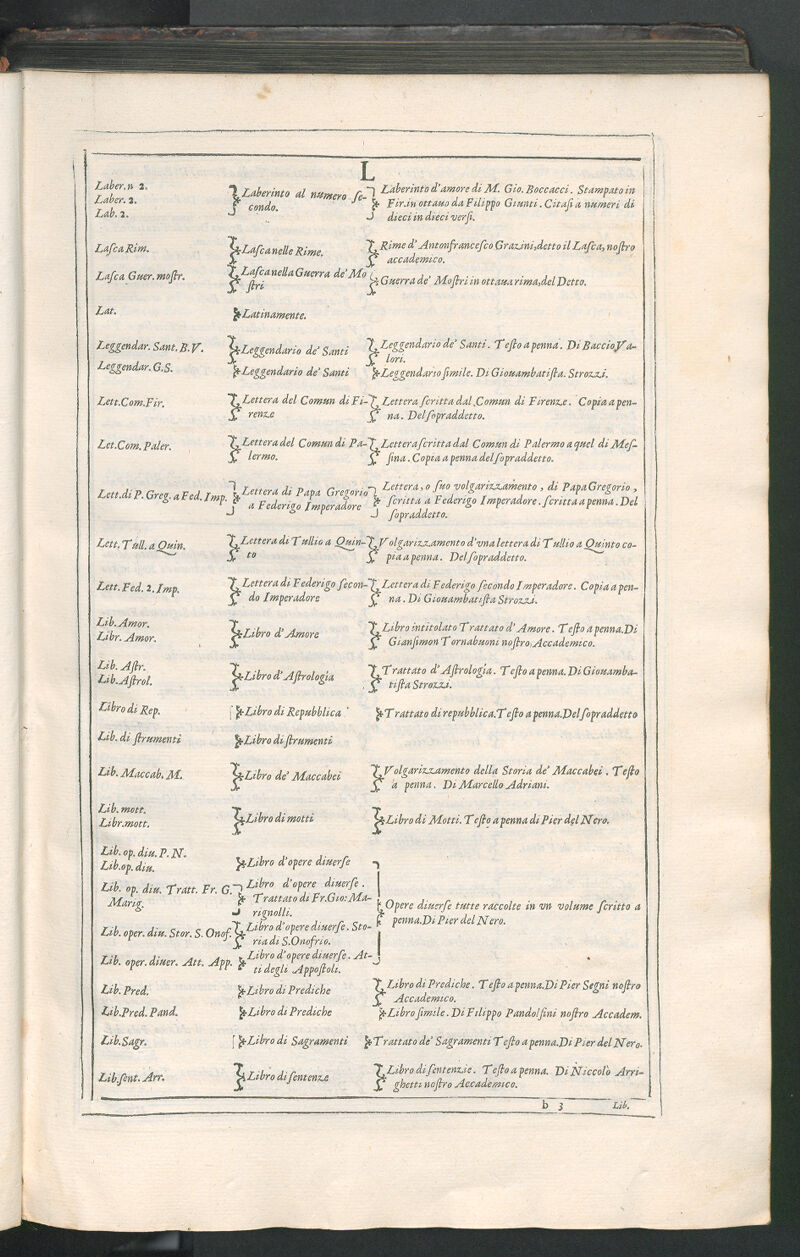 L
Laber.n 2.
Laber. 2.
Lab. 2.
Laberinto al numero ſe-
condo.
Laberinto d'amore di M. Gio. Boccacci. Stampato in
Fir.in ottauo da Filippo Giunti. Citaſi a numeri di
dieci in dieci verſi.
Laſca Rim.
Laſca nelle Rime.
Rime d' Antonfranceſco Grazini,detto il Laſca, noſtro
accademico.
Laſca Guer. moſtr.
Laſca nella Guerra de' Mo
ſtri
Guerra de' Moſtri in ottaua rima,del Detto.
Lat.
Latinamente.
Leggendar. Sant. B.V.
Leggendario de' Santi
Leggendario de' Santi. Teſto a penna. Di Baccio Va-
lori.
Leggendar. G.S.
Leggendario de' Santi
Leggendario ſimile. Di Giouambatiſta. Strozzi.
Lett.Com.Fir.
Lettera del Comun di Fi-
renze
Lettera ſcritta dal Comun di Firenze. Copia a pen-
na. Del ſopraddetto.
Let.Com. Paler.
Lettera del Comun di Pa-
lermo.
Lettera ſcritta dal Comun di Palermo a quel di Meſ-
ſina. Copia a penna del ſopraddetto.
Lett.di P. Greg. a Fed. Imp.
Lettera di Papa Gregorio
a Federigo Imperadore
Lettera, o ſuo volgarizzamento, di Papa Gregorio,
ſcritta a Federigo Imperadore. ſcritta a penna. Del
ſopraddetto.
Lett. Tull. a Quin.
Lettera di Tullio a Quin-
to
Volgarizzamento d'vna lettera di Tullio a Quinto co-
pia a penna. Del ſopraddetto.
Lett. Fed. 2. Imp.
Lettera di Federigo ſecon-
do Imperadore
Lettera di Federigo ſecondo Imperadore. Copia a pen-
na. Di Giouambatiſta Strozzi.
Lib. Amor.
Libr. Amor.
Libro d' Amore
Libro intitolato Trattato d' Amore. Teſto a penna. Di
Gianſimon Tornabuoni noſtro Accademico.
Lib. Aſtr.
Lib. Aſtrol.
Libro d' Aſtrologia
Trattato d' Aſtrologia. Teſto a penna. Di Giouamba-
tiſta Strozzi.
Libro di Rep.
Libro di Repubblica
Trattato di repubblica.Teſto a penna.Del ſopraddetto
Lib. di ſtrumenti
Libro di ſtrumenti
Lib. Maccab. M.
Libro de' Maccabei
Volgarizzamento della Storia de' Maccabei. Teſto
a penna. Di Marcello Adriani.
Lib. mott.
Libr.mott.
Libro di motti
Libro di Motti. Teſto a penna di Pier del Nero.
Lib. op. diu. P. N.
Lib.op. diu.
Libro d'opere diuerſe
Lib. op. diu. Tratt. Fr. G.
Marig.
Libro d'opere diuerſe.
Trattato di Fr.Gio: Ma-
rignolli.
Opere diuerſe tutte raccolte in vn volume ſcritto a
penna.Di Pier del Nero.
Lib. oper. diu. Stor. S. Onof.
Libro d'opere diuerſe. Sto-
ria di S.Onofrio.
Lib. oper. diuer. Att. App.
Libro d'opere diuerſe. At-
ti degli Appoſtoli.
Lib. Pred.
Libro di Prediche
Libro di Prediche. Teſto a penna.Di Pier Segni noſtro
Accademico.
Lib.Pred. Pand.
Libro di Prediche
Libro ſimile. Di Filippo Pandolfini noſtro Accadem.
Lib.Sagr.
Libro di Sagramenti
Trattato de' Sagramenti Teſto a penna.Di Pier del Nero.
Lib.ſent. Arr.
Libro di ſentenze
Libro di ſentenzie. Teſto a penna. Di Niccolò Arri-
ghetti noſtro Accademico.
b 3
Lib.